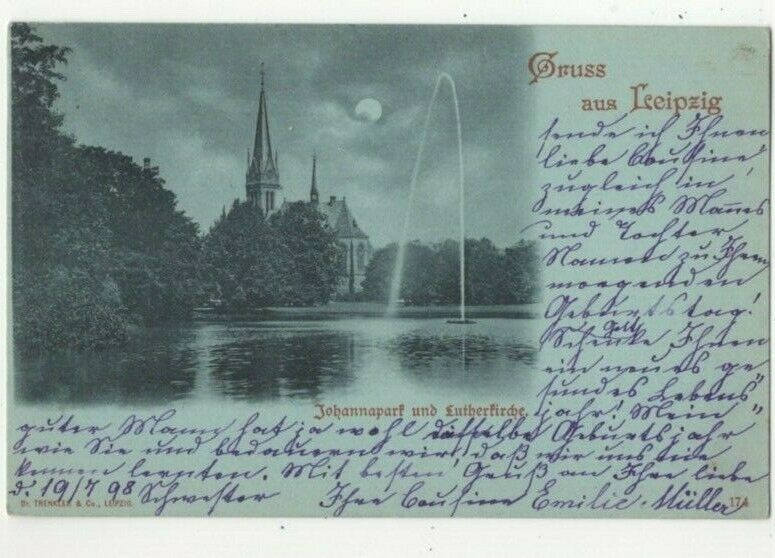 Gruss
aus Leipzig
sende ich Ihnen
liebe Cousine
zugleich in
meines Mannes
und Tochter
Namen zu Ihrem
morgenden
Geburtstag!
Schenke Gott Ihnen
ein neues ge
sundes Lebens"
Johannapark und Lutherkirche.
jahr! Mein"
guter Mann hat ja wohl dasselbe Geburtsjahr
wie Sie und bedauern wir, daß wir uns nie
kennen lernten. Mit besten Gruß an Ihre liebe
d. 19/7 98 Schwester Ihre Cousine Emilie Müller
Dr. TRENKLER & Co., LEIPZIG.
174